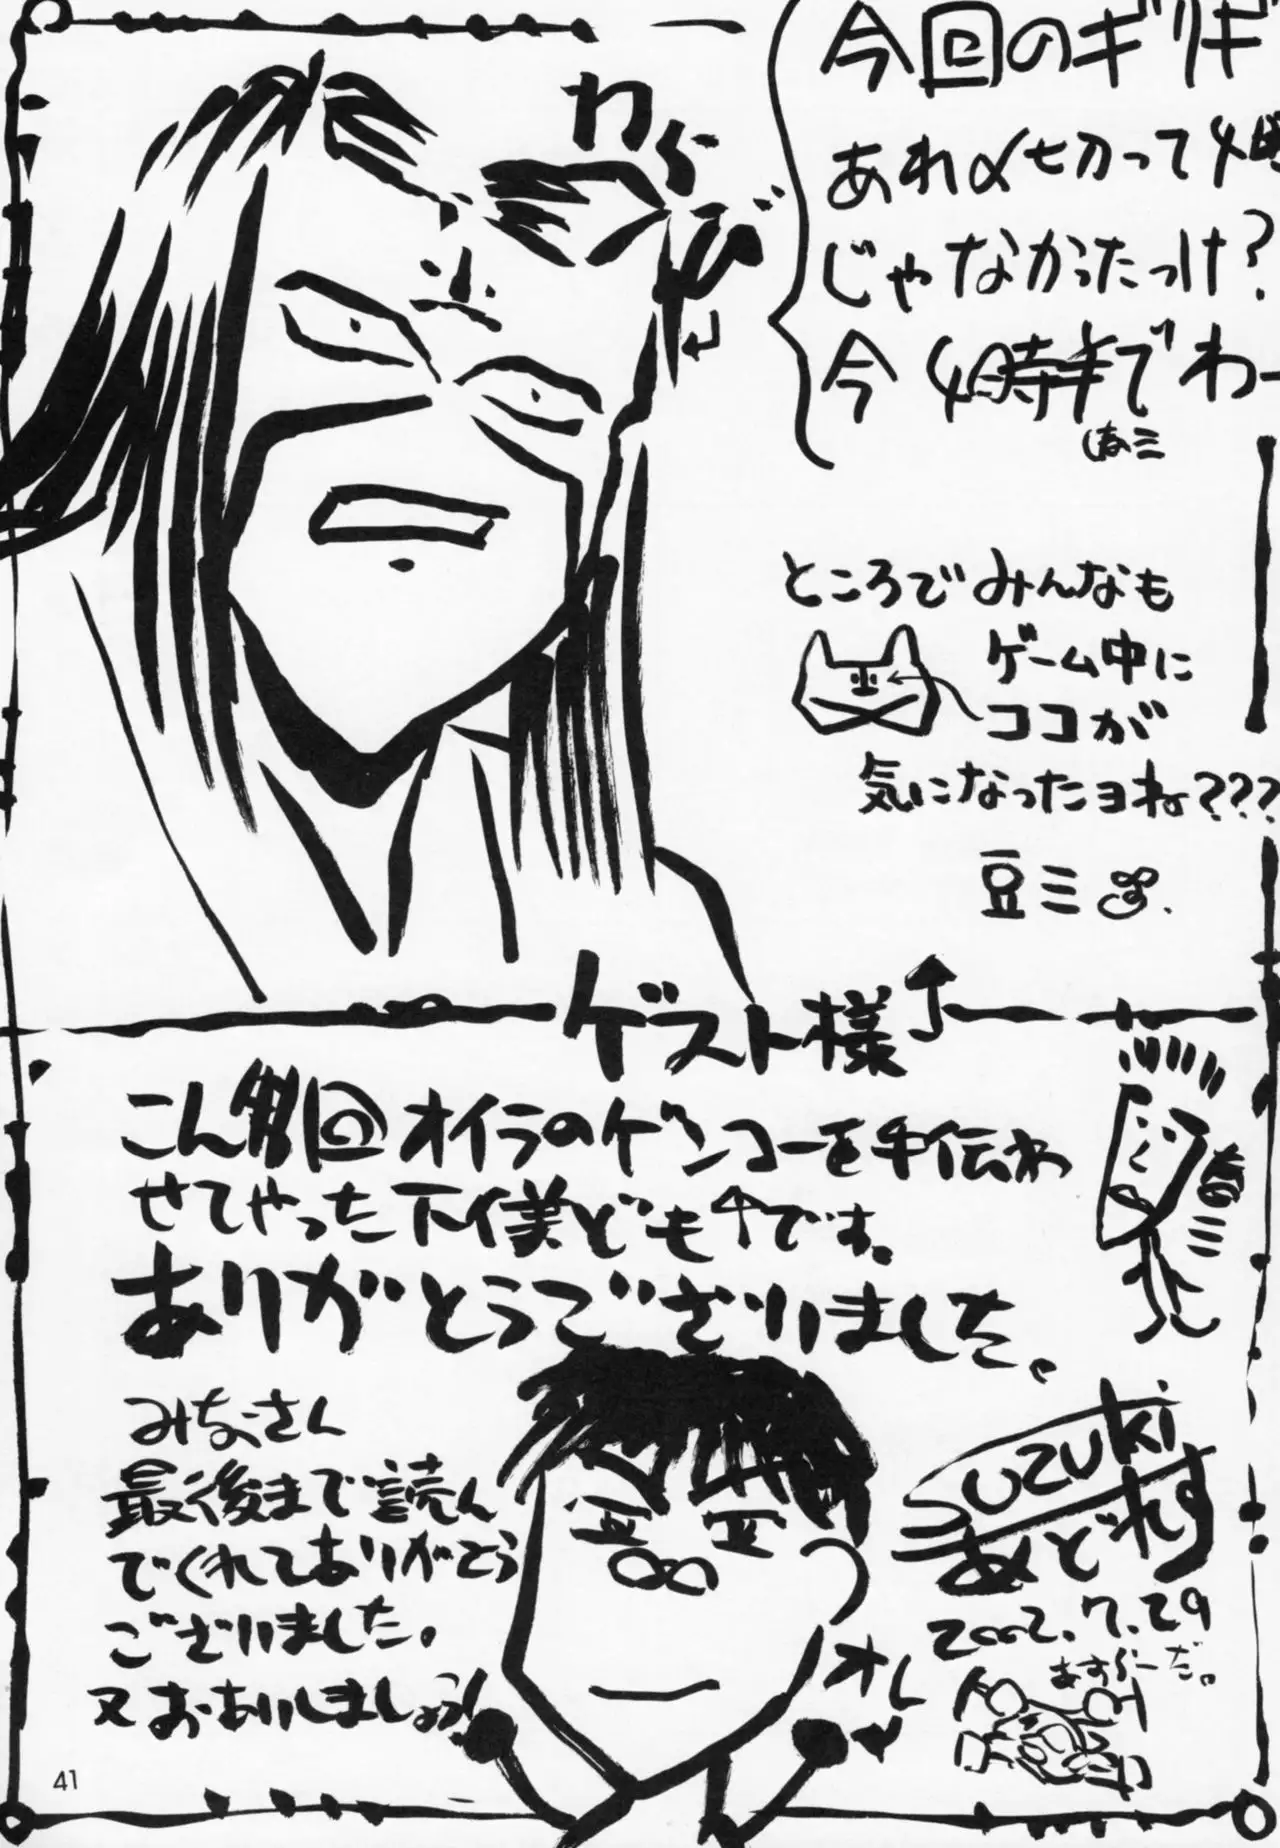 今回のギリギ
あれ〆切って4時
じゃなかったっけ?
今4時半でわー
ところでみんなも
ゲーム中に
ココが
気になったヨね???
豆ミ
わらび
ゲスト様↑
こん回オイラのゲンコーを手伝わ
せてやった下僕ども↑です。
ありがとうございました。
春ミ
みなさん
最後まで読ん
でくれてありがとう
ございました。
又おあいしましょう!
オレ
SUZUKi
あどれす
2002.7.29
41